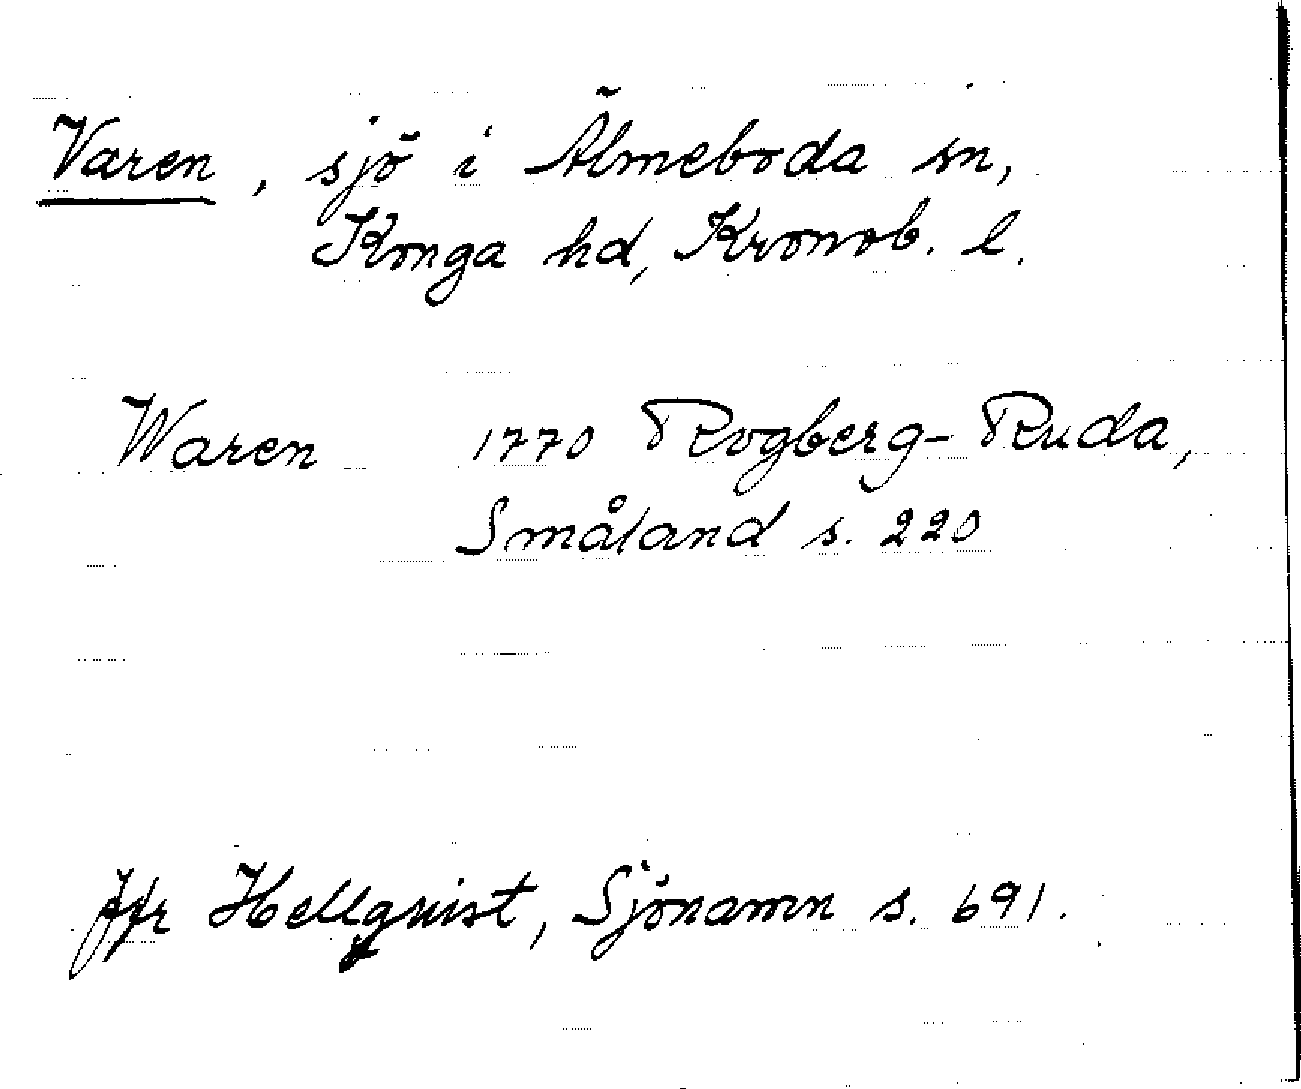 Varen, sjö i Älmeboda sn,
Konga hd, Kronob. l.
Waren 1770 Rogberg-Ruda,
Småland s. 220
Jfr Hellquist, Sjönamn s. 691.